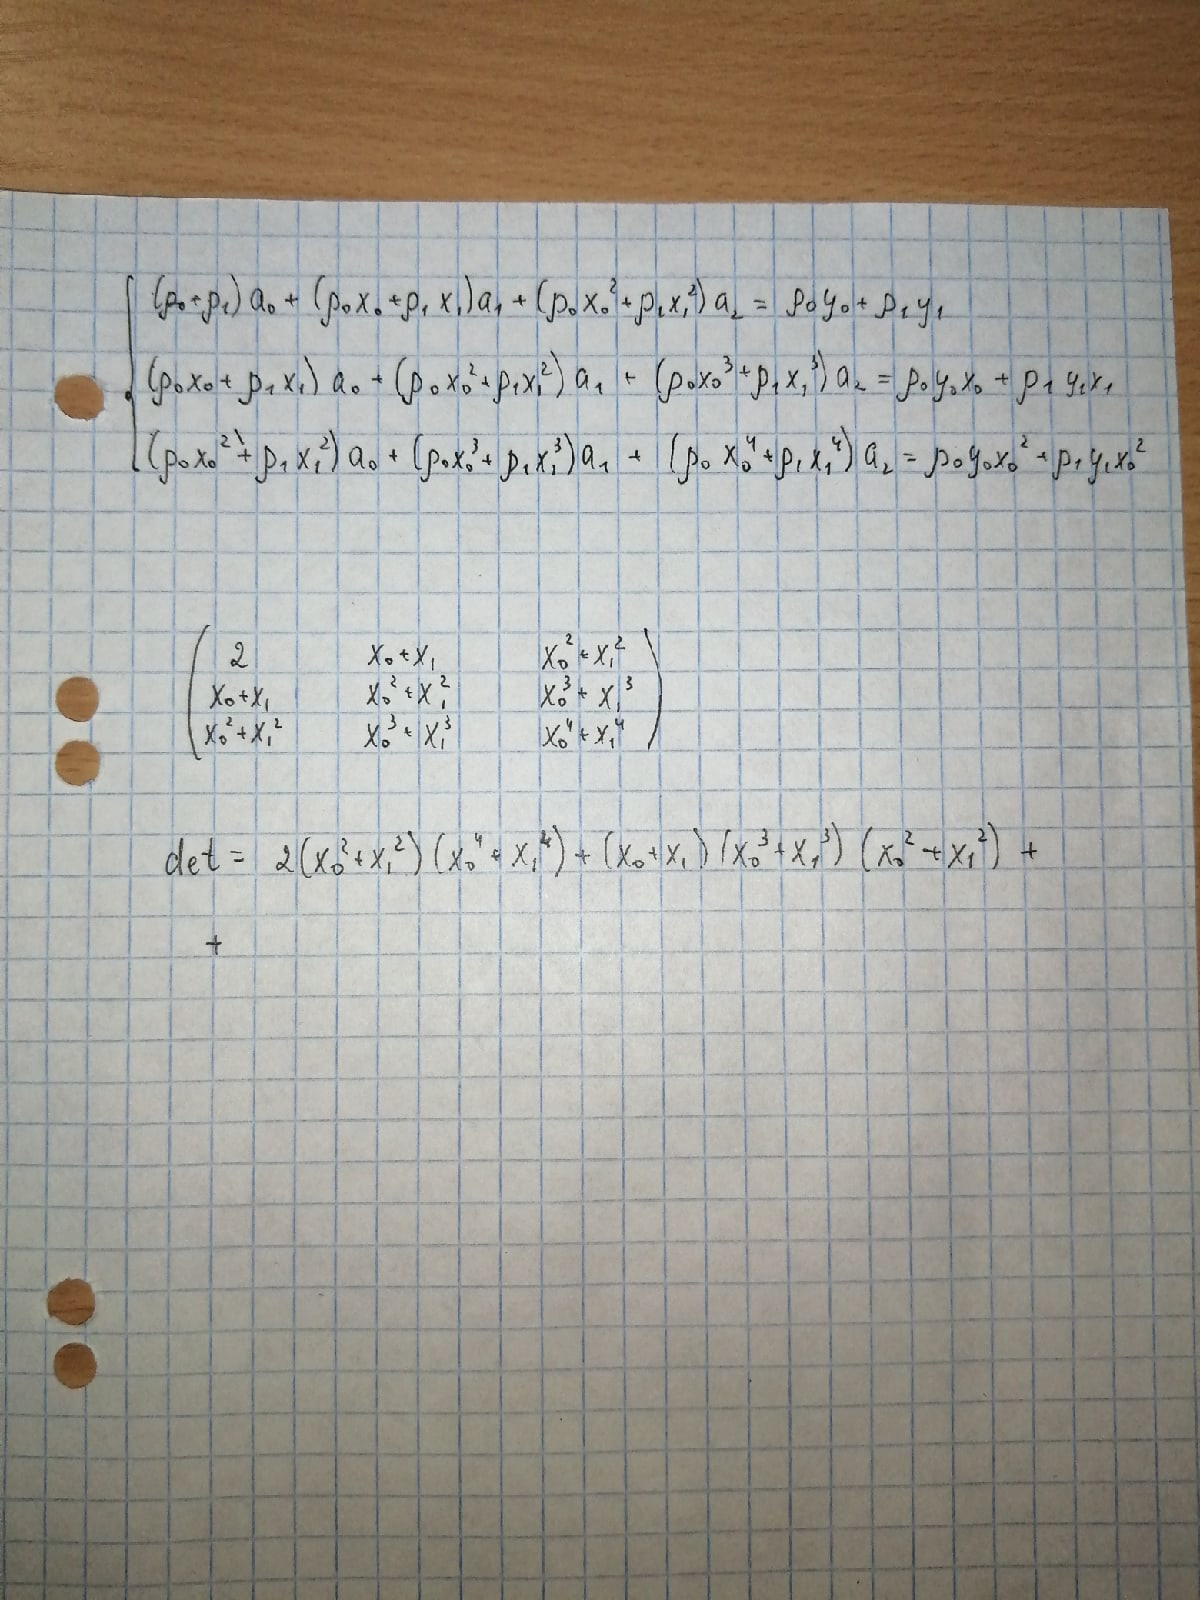 (p₀+p₁) a₀ + (p₀x₀+p₁x₁)a₁ + (p₀x₀²+p₁x₁²) a₂ = p₀y₀ + p₁y₁
(p₀x₀+p₁x₁) a₀ + (p₀x₀²+p₁x₁²) a₁ + (p₀x₀³+p₁x₁³) a₂ = p₀y₀x₀ + p₁y₁x₁
(p₀x₀²+p₁x₁²) a₀ + (p₀x₀³+p₁x₁³)a₁ + (p₀x₀⁴+p₁x₁⁴) a₂ = p₀y₀x₀² + p₁y₁x₀²
2 x₀+x₁ x₀²+x₁²
x₀+x₁ x₀²+x₁² x₀³+x₁³
x₀²+x₁² x₀³+x₁³ x₀⁴+x₁⁴
det = 2(x₀²+x₁²)(x₀⁴+x₁⁴) + (x₀+x₁)(x₀³+x₁³)(x₀²+x₁²) +
+